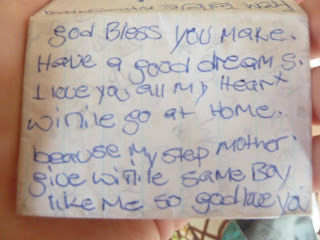 god Bless you make.
Have a good dream s.
I love you all my Heart
winile go at Home.
beause my step mother.
give winile same Boy
like me so god love you